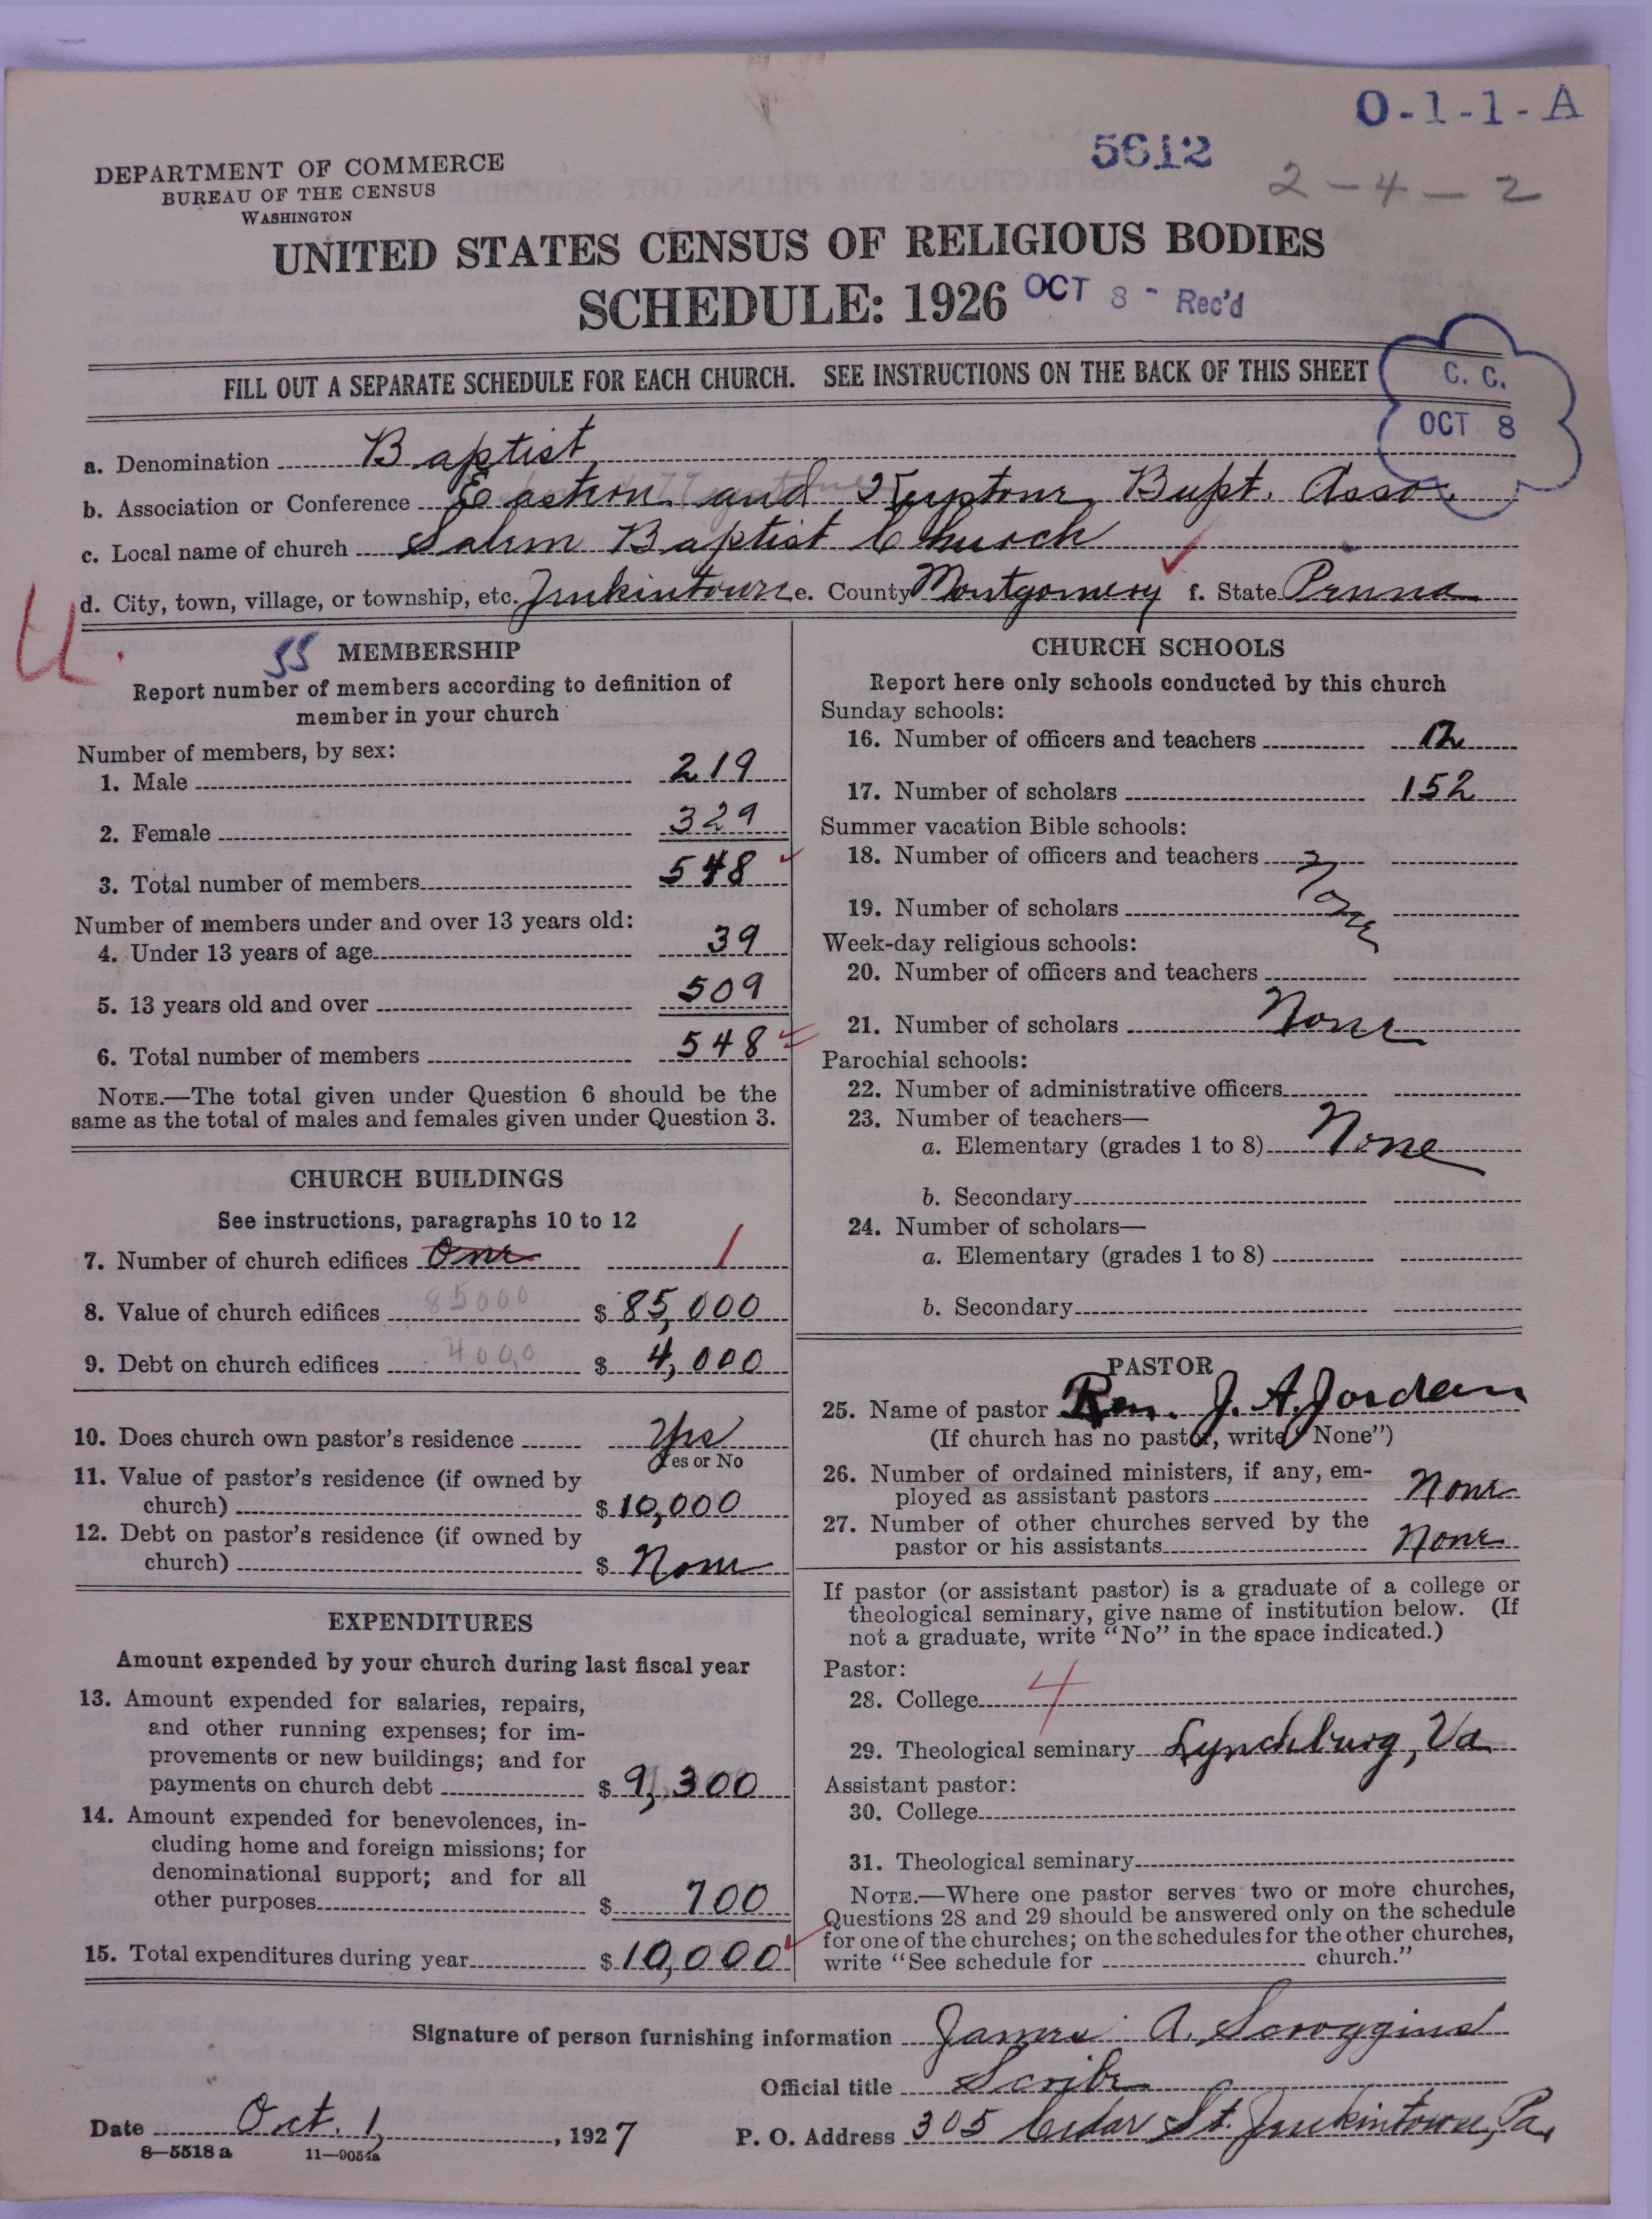 O-1-1-A
5612
2-4-2
DEPARTMENT OF COMMERCE
BUREAU OF THE CENSUS
WASHINGTON
UNITED STATES CENSUS OF RELIGIOUS BODIES
SCHEDULE: 1926
OCT 8 - Rec'd
FILL OUT A SEPARATE SCHEDULE FOR EACH CHURCH. SEE INSTRUCTIONS ON THE BACK OF THIS SHEET
C. C.
OCT 8
a. Denomination Baptist
b. Association or Conference Eastern and Keystone Bapt. Asso.
c. Local name of church Salem Baptist Church
d. City, town, village, or township, etc. Jenkintown e. County Montgomery f. State Penna
55 MEMBERSHIP
Report number of members according to definition of
member in your church
Number of members, by sex:
1. Male 219
2. Female 329
3. Total number of members 548
Number of members under and over 13 years old:
4. Under 13 years of age 39
5. 13 years old and over 509
6. Total number of members 548
NOTE.—The total given under Question 6 should be the
same as the total of males and females given under Question 3.
CHURCH BUILDINGS
See instructions, paragraphs 10 to 12
7. Number of church edifices One 1
8. Value of church edifices 85000 $ 85,000
9. Debt on church edifices 4000 $ 4,000
10. Does church own pastor's residence Yes
Yes or No
11. Value of pastor's residence (if owned by
church) $ 10,000
12. Debt on pastor's residence (if owned by
church) $ None
EXPENDITURES
Amount expended by your church during last fiscal year
13. Amount expended for salaries, repairs,
and other running expenses; for im-
provements or new buildings; and for
payments on church debt $ 9,300
14. Amount expended for benevolences, in-
cluding home and foreign missions; for
denominational support; and for all
other purposes $ 700
15. Total expenditures during year $ 10,000
CHURCH SCHOOLS
Report here only schools conducted by this church
Sunday schools:
16. Number of officers and teachers 12
17. Number of scholars 152
Summer vacation Bible schools:
18. Number of officers and teachers
None
19. Number of scholars
Week-day religious schools:
20. Number of officers and teachers
21. Number of scholars None
Parochial schools:
22. Number of administrative officers
23. Number of teachers—
a. Elementary (grades 1 to 8) None
b. Secondary
24. Number of scholars—
a. Elementary (grades 1 to 8)
b. Secondary
PASTOR
25. Name of pastor Rev. J. A. Jordan
(If church has no pastor, write "None")
26. Number of ordained ministers, if any, em-
ployed as assistant pastors None
27. Number of other churches served by the
pastor or his assistants None
If pastor (or assistant pastor) is a graduate of a college or
theological seminary, give name of institution below. (If
not a graduate, write "No" in the space indicated.)
Pastor:
28. College 4
29. Theological seminary Lynchburg, Va
Assistant pastor:
30. College
31. Theological seminary
NOTE.—Where one pastor serves two or more churches,
Questions 28 and 29 should be answered only on the schedule
for one of the churches; on the schedules for the other churches,
write "See schedule for church."
Signature of person furnishing information James A. Scroggins
Official title Scribe
Date Oct. 1, 1927
P. O. Address 305 Cedar St. Jenkintown, Pa.
8—5518 a 11—9054a